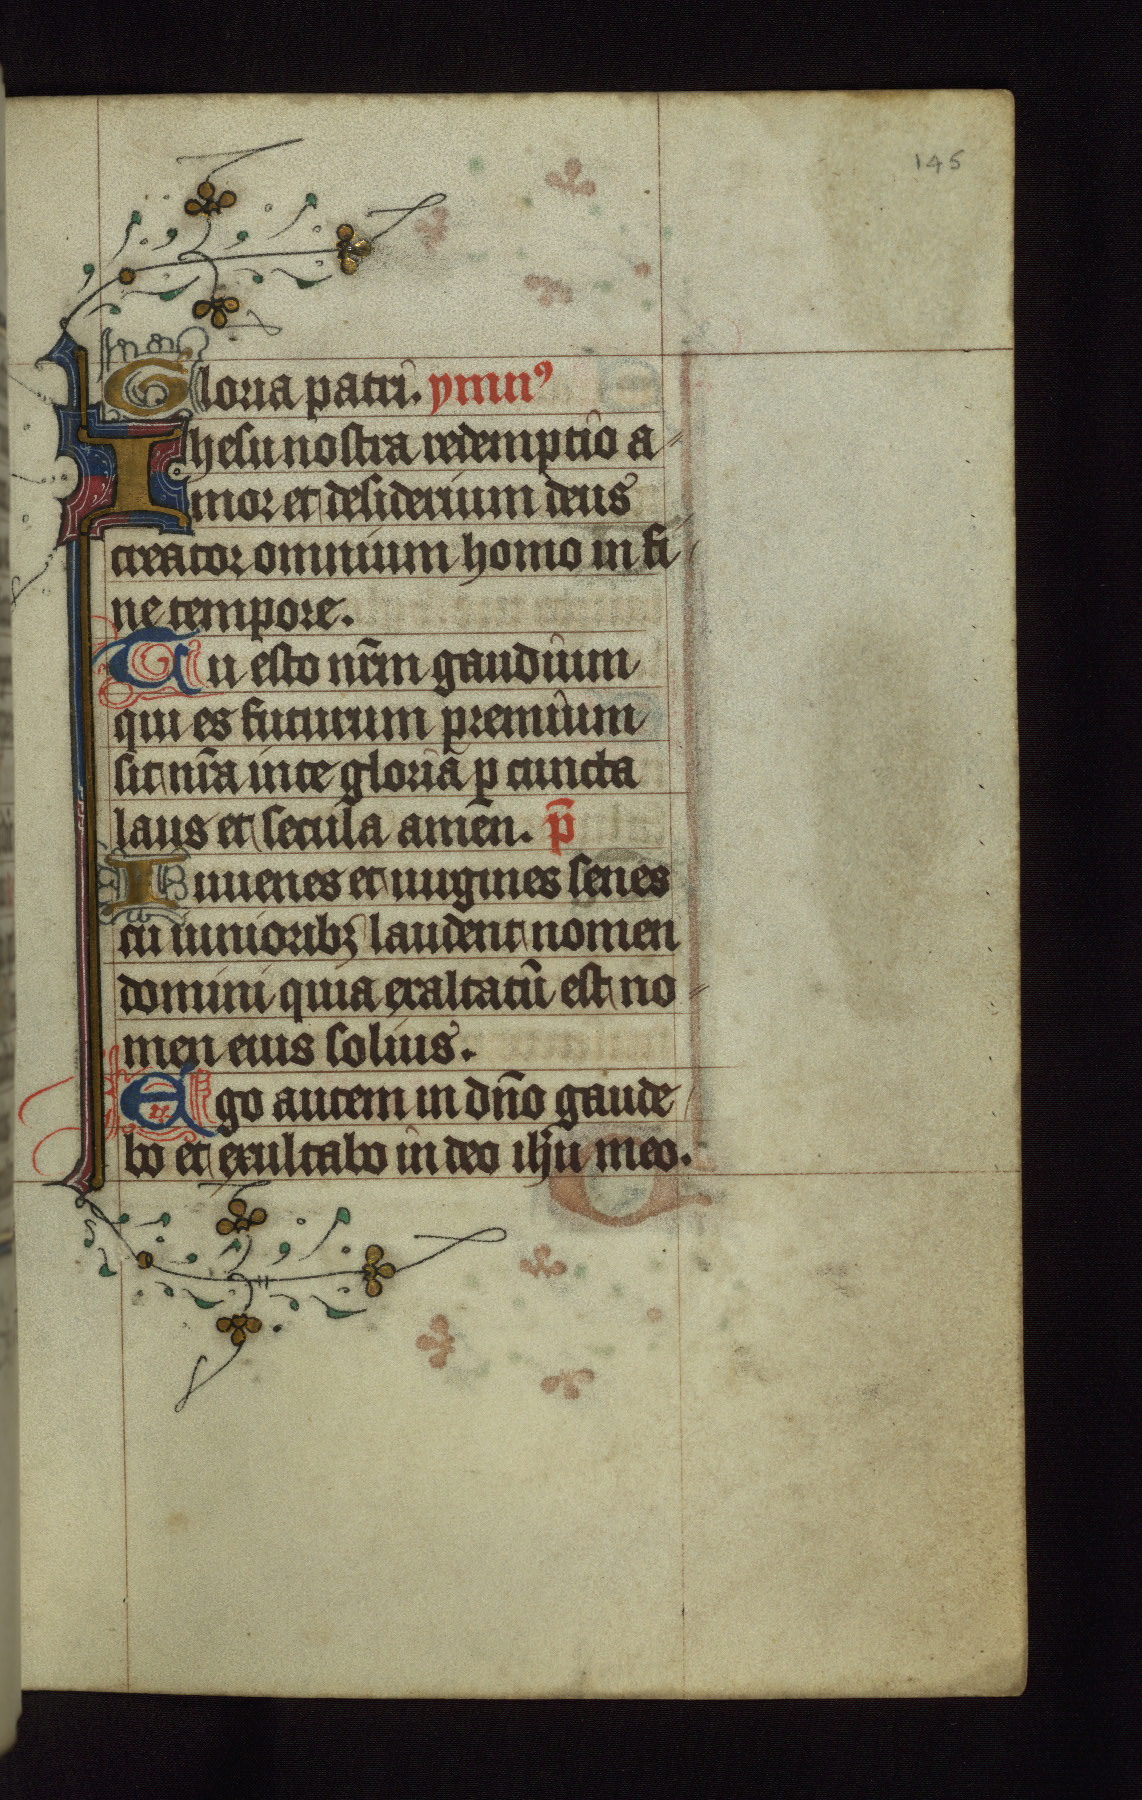 145
Gloria patri. ymnꝰ
Ihesu nostra redemptio a
mor et desiderium deus
creator omnium homo in fi
ne tempore.
Tu esto nr̄m gaudium
qui es futurum premium
sit nr̄a in te gloria p cuncta
laus et secula amen. p̄
Iuuenes et uirgines senes
cū iunioribꝫ laudent nomen
domini quia exaltatū est no
men eius solius.
Ego autem in dn̄o gaude
bo et exultabo in deo ihu meo.